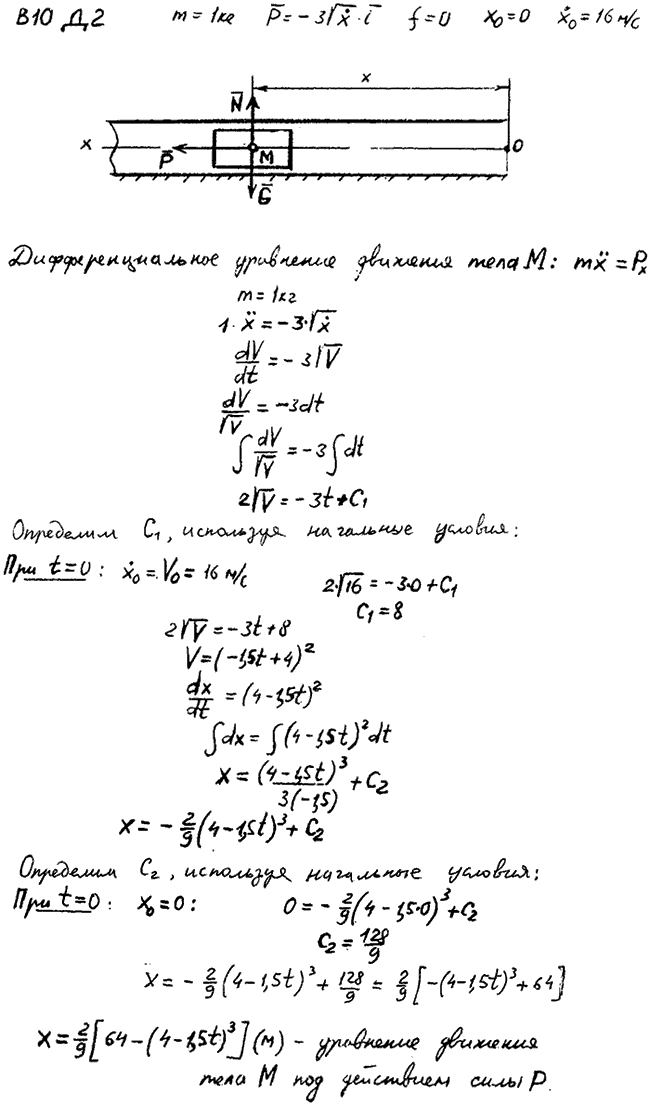 В10 Д2 m = 1кг P̅ = -3√ẋ · i̅ f = 0 x₀ = 0 ẋ₀ = 16 м/с
x
N̅
x P̅ M O
G̅
Дифференциальное уравнение движения тела М: mẍ = Pₓ
m = 1кг
1·ẍ = -3·√ẋ
dV/dt = -3√V
dV/√V = -3dt
∫ dV/√V = -3∫dt
2√V = -3t + C₁
Определим C₁, используя начальные условия:
При t=0: ẋ₀ = V₀ = 16 м/с 2·√16 = -3·0 + C₁
C₁ = 8
2√V = -3t + 8
V = (-1,5t + 4)²
dx/dt = (4 - 1,5t)²
∫dx = ∫(4 - 1,5t)²dt
x = (4 - 1,5t)³/3(-1,5) + C₂
x = - 2/9 (4 - 1,5t)³ + C₂
Определим C₂, используя начальные условия:
При t=0: x₀ = 0: 0 = - 2/9 (4 - 1,5·0)³ + C₂
C₂ = 128/9
x = - 2/9 (4 - 1,5t)³ + 128/9 = 2/9 [-(4 - 1,5t)³ + 64]
x = 2/9 [64 - (4 - 1,5t)³] (м) - уравнение движения
тела М под действием силы P.